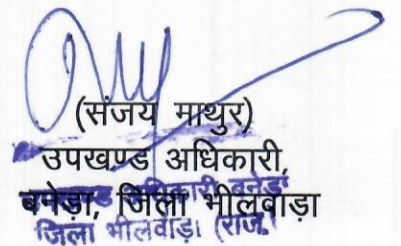 (संजय माथुर)
उपखण्ड अधिकारी,
बनेड़ा, जिला भीलवाड़ा
अधिकारी बनेड़ा
जिला भीलवाड़ा (राज.)